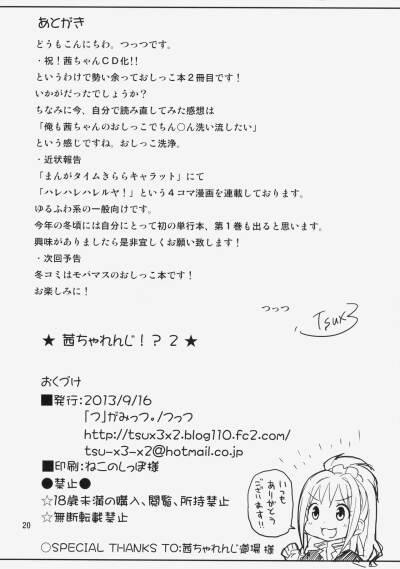 あとがき
どうもこんにちわ。つっつです。
・祝！茜ちゃんＣＤ化!!
というわけで勢い余っておしっこ本２冊目です！
いかがだったでしょうか？
ちなみに今、自分で読み直してみた感想は
「俺も茜ちゃんのおしっこでちん○ん洗い流したい」
という感じですね。おしっこ洗浄。
・近状報告
「まんがタイムきららキャラット」にて
「ハレハレハレルヤ！」という４コマ漫画を連載しております。
ゆるふわ系の一般向けです。
今年の冬頃には自分にとって初の単行本、第１巻も出ると思います。
興味がありましたら是非宜しくお願い致します！
・次回予告
冬コミはモバマスのおしっこ本です！
お楽しみに！
つっつ
Tsux3
★ 茜ちゃれんじ！？ 2 ★
おくづけ
■発行：2013/9/16
「つ」がみっつ。/つっつ
http://tsux3x2.blog110.fc2.com/
tsu-x3-x2@hotmail.co.jp
■印刷：ねこのしっぽ様
●禁止●
☆18歳未満の購入、閲覧、所持禁止
☆無断転載禁止
いつも
ありがとう
ございます!!
20
○SPECIAL THANKS TO:茜ちゃれんじ道場 様